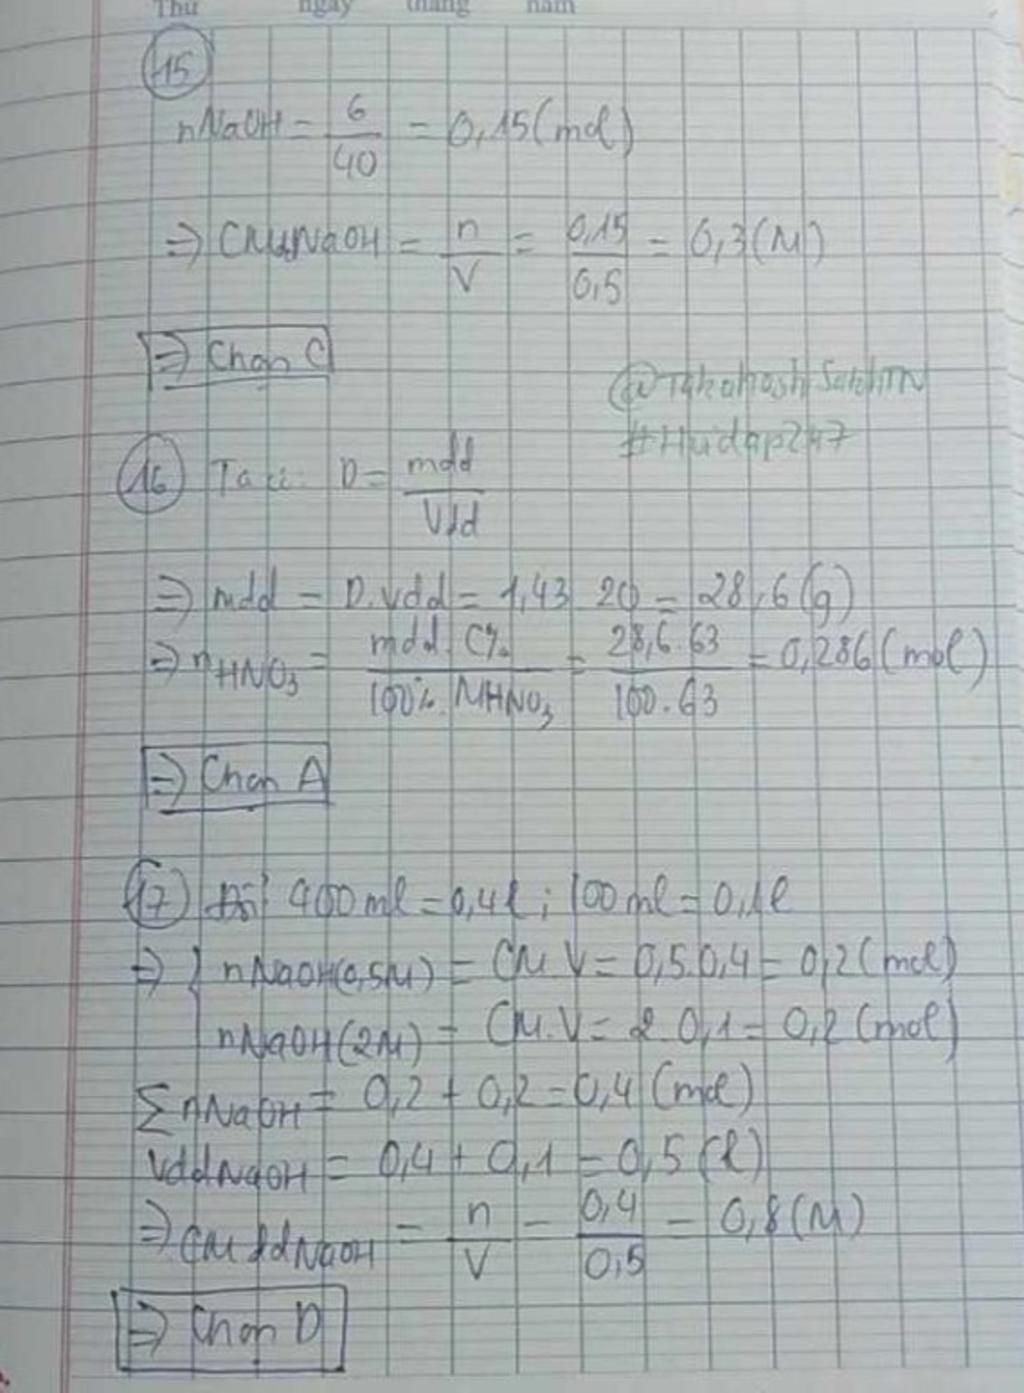 Thứ ngày tháng năm
15
nNaOH = 6/40 = 0,15 (mol)
=> CM NaOH = n/V = 0,15/0,5 = 0,3 (M)
=> Chọn C
#Hoidap247
16 Ta có: D = mdd/Vdd
=> mdd = D.Vdd = 1,43.20 = 28,6 (g)
=> nHNO3 = mdd.C%/100%.MHNO3 = 28,6.63/100.63 = 0,286 (mol)
=> Chọn A
17 Đổi 400ml = 0,4l; 100ml = 0,1l
=> { nNaOH(0,5M) = CM.V = 0,5.0,4 = 0,2 (mol)
nNaOH(2M) = CM.V = 2.0,1 = 0,2 (mol)
∑nNaOH = 0,2 + 0,2 = 0,4 (mol)
VddNaOH = 0,4 + 0,1 = 0,5 (l)
=> CM ddNaOH = n/V = 0,4/0,5 = 0,8 (M)
=> Chọn D